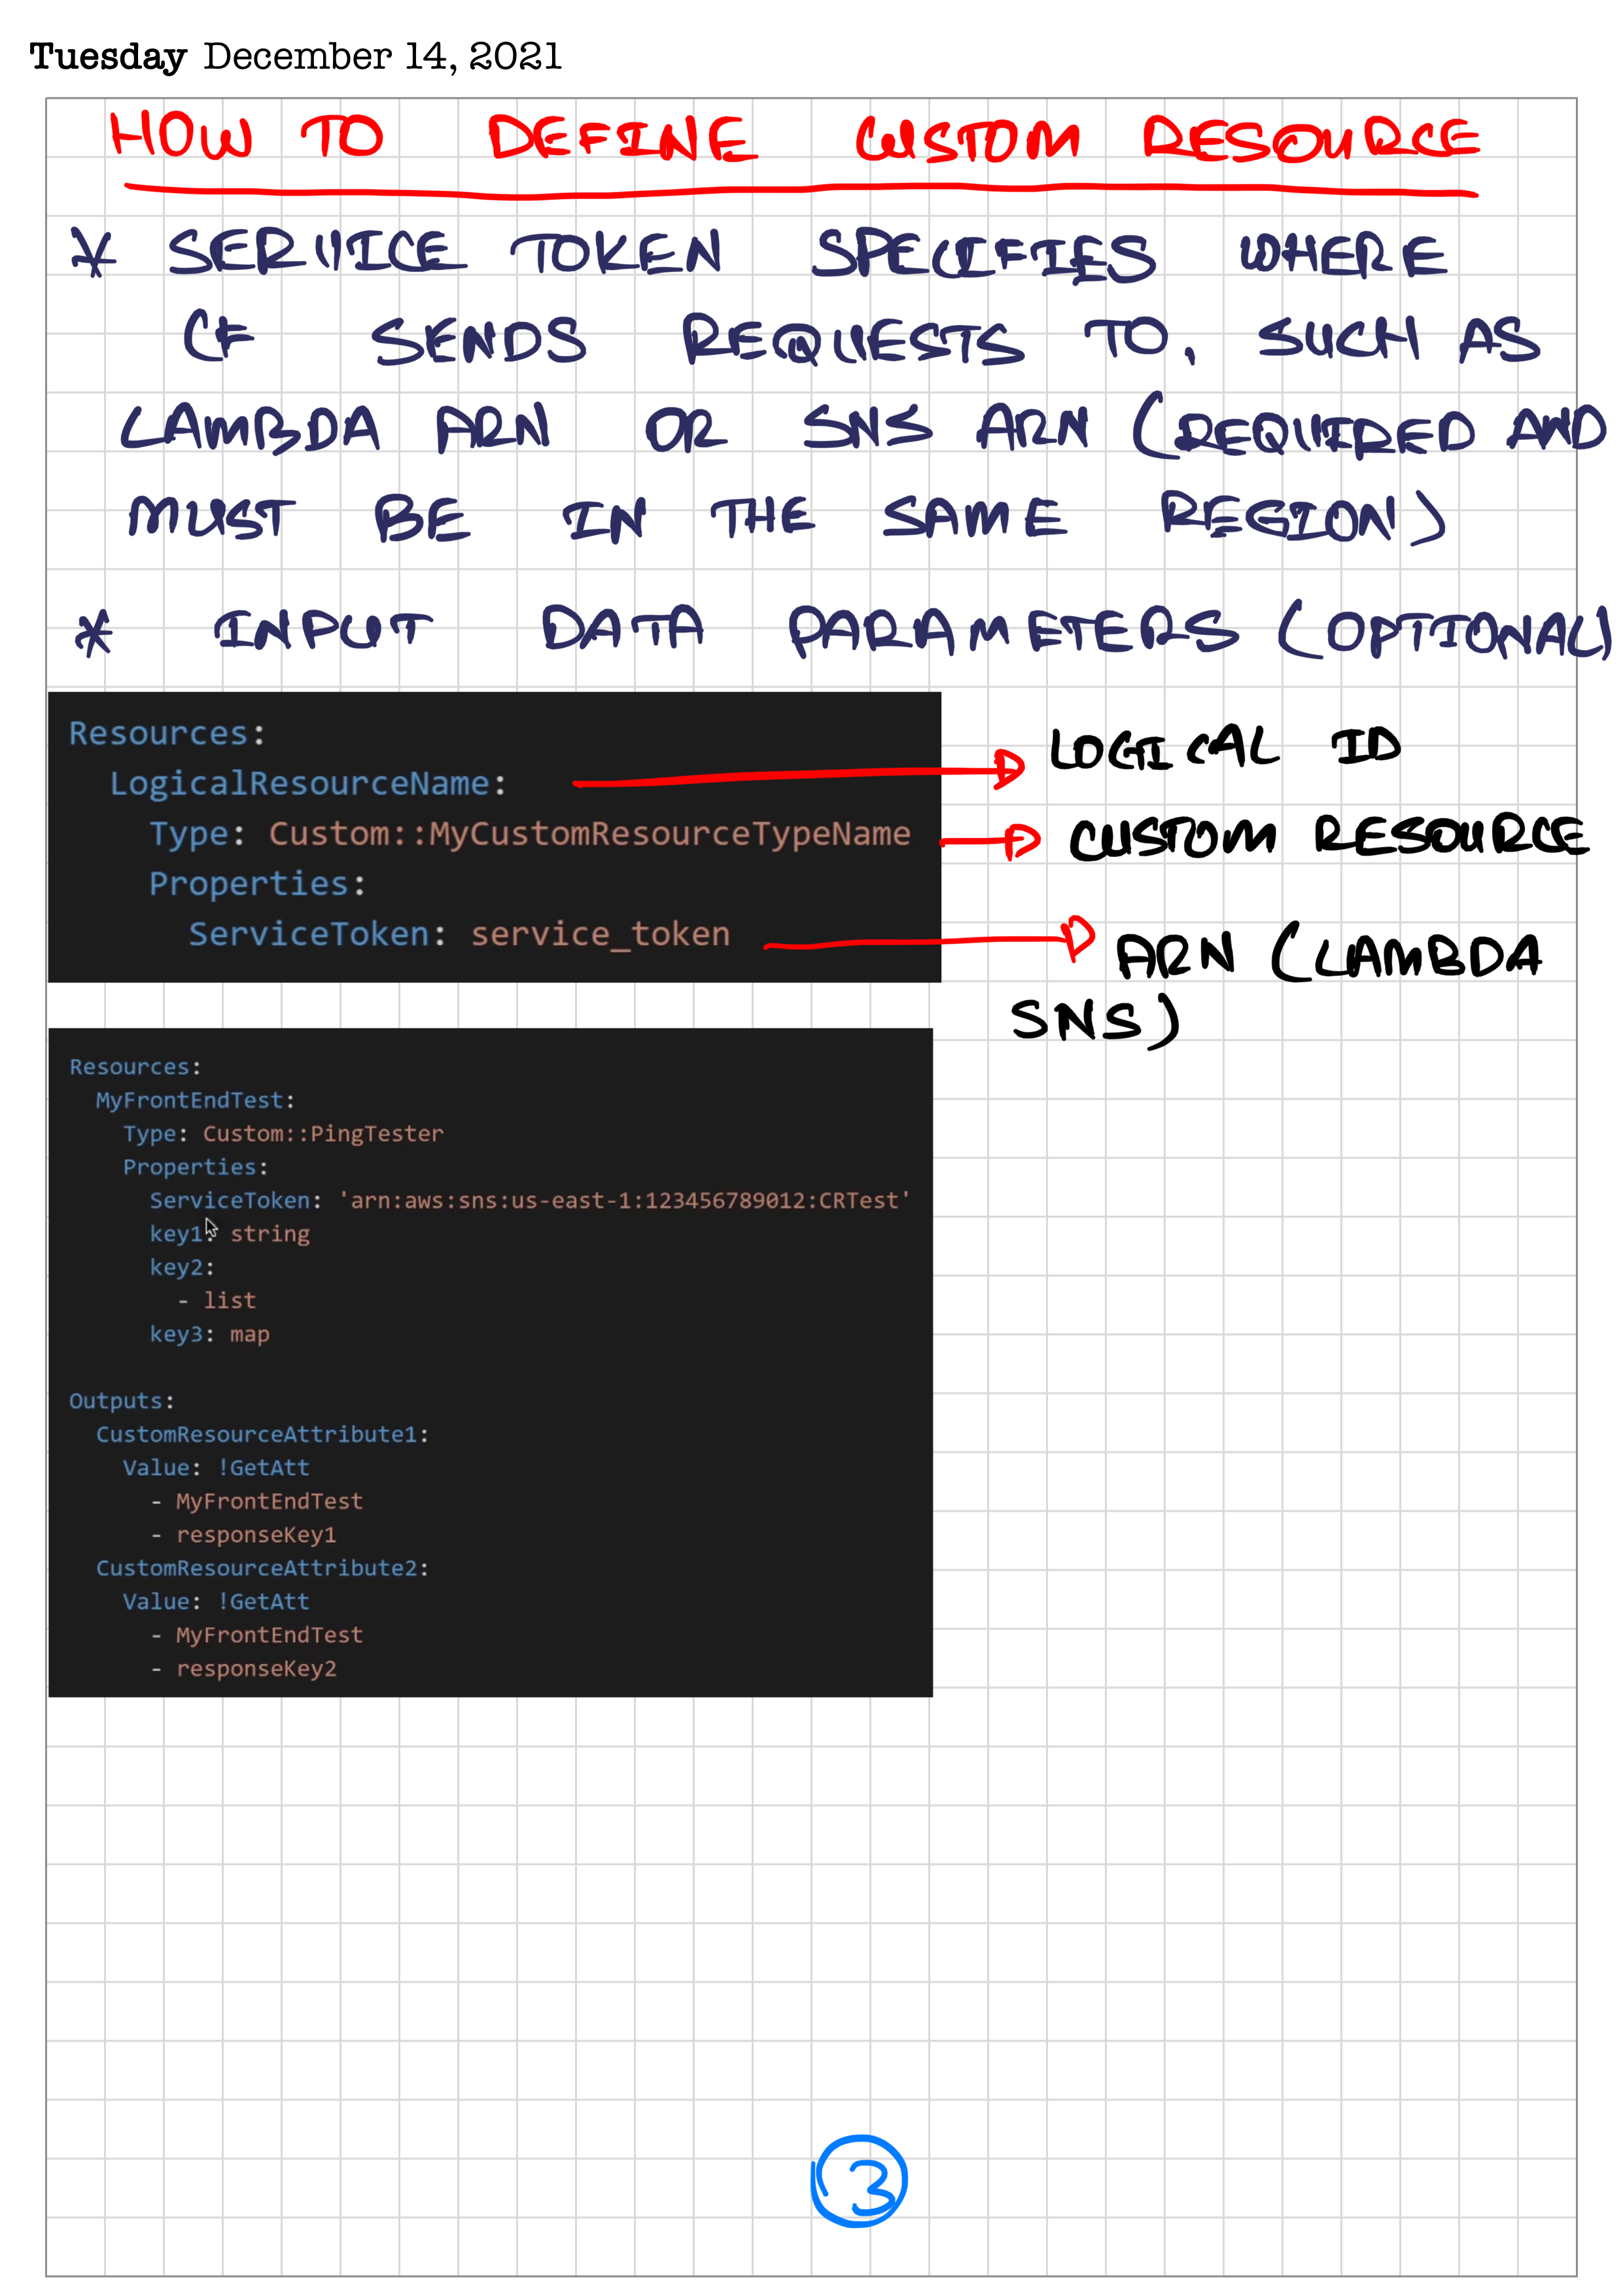 Tuesday December 14, 2021
HOW TO DEFINE CUSTOM RESOURCE
* SERVICE TOKEN SPECIFIES WHERE
CF SENDS REQUESTS TO, SUCH AS
LAMBDA ARN OR SNS ARN (REQUIRED AND
MUST BE IN THE SAME REGION)
* INPUT DATA PARAMETERS (OPTIONAL)
Resources:
LogicalResourceName:
LOGICAL ID
Type: Custom::MyCustomResourceTypeName
CUSTOM RESOURCE
Properties:
ServiceToken: service_token
ARN (LAMBDA
SNS)
Resources:
MyFrontEndTest:
Type: Custom::PingTester
Properties:
ServiceToken: 'arn:aws:sns:us-east-1:123456789012:CRTest'
key1: string
key2:
- list
key3: map
Outputs:
CustomResourceAttribute1:
Value: !GetAtt
- MyFrontEndTest
- responseKey1
CustomResourceAttribute2:
Value: !GetAtt
- MyFrontEndTest
- responseKey2
3